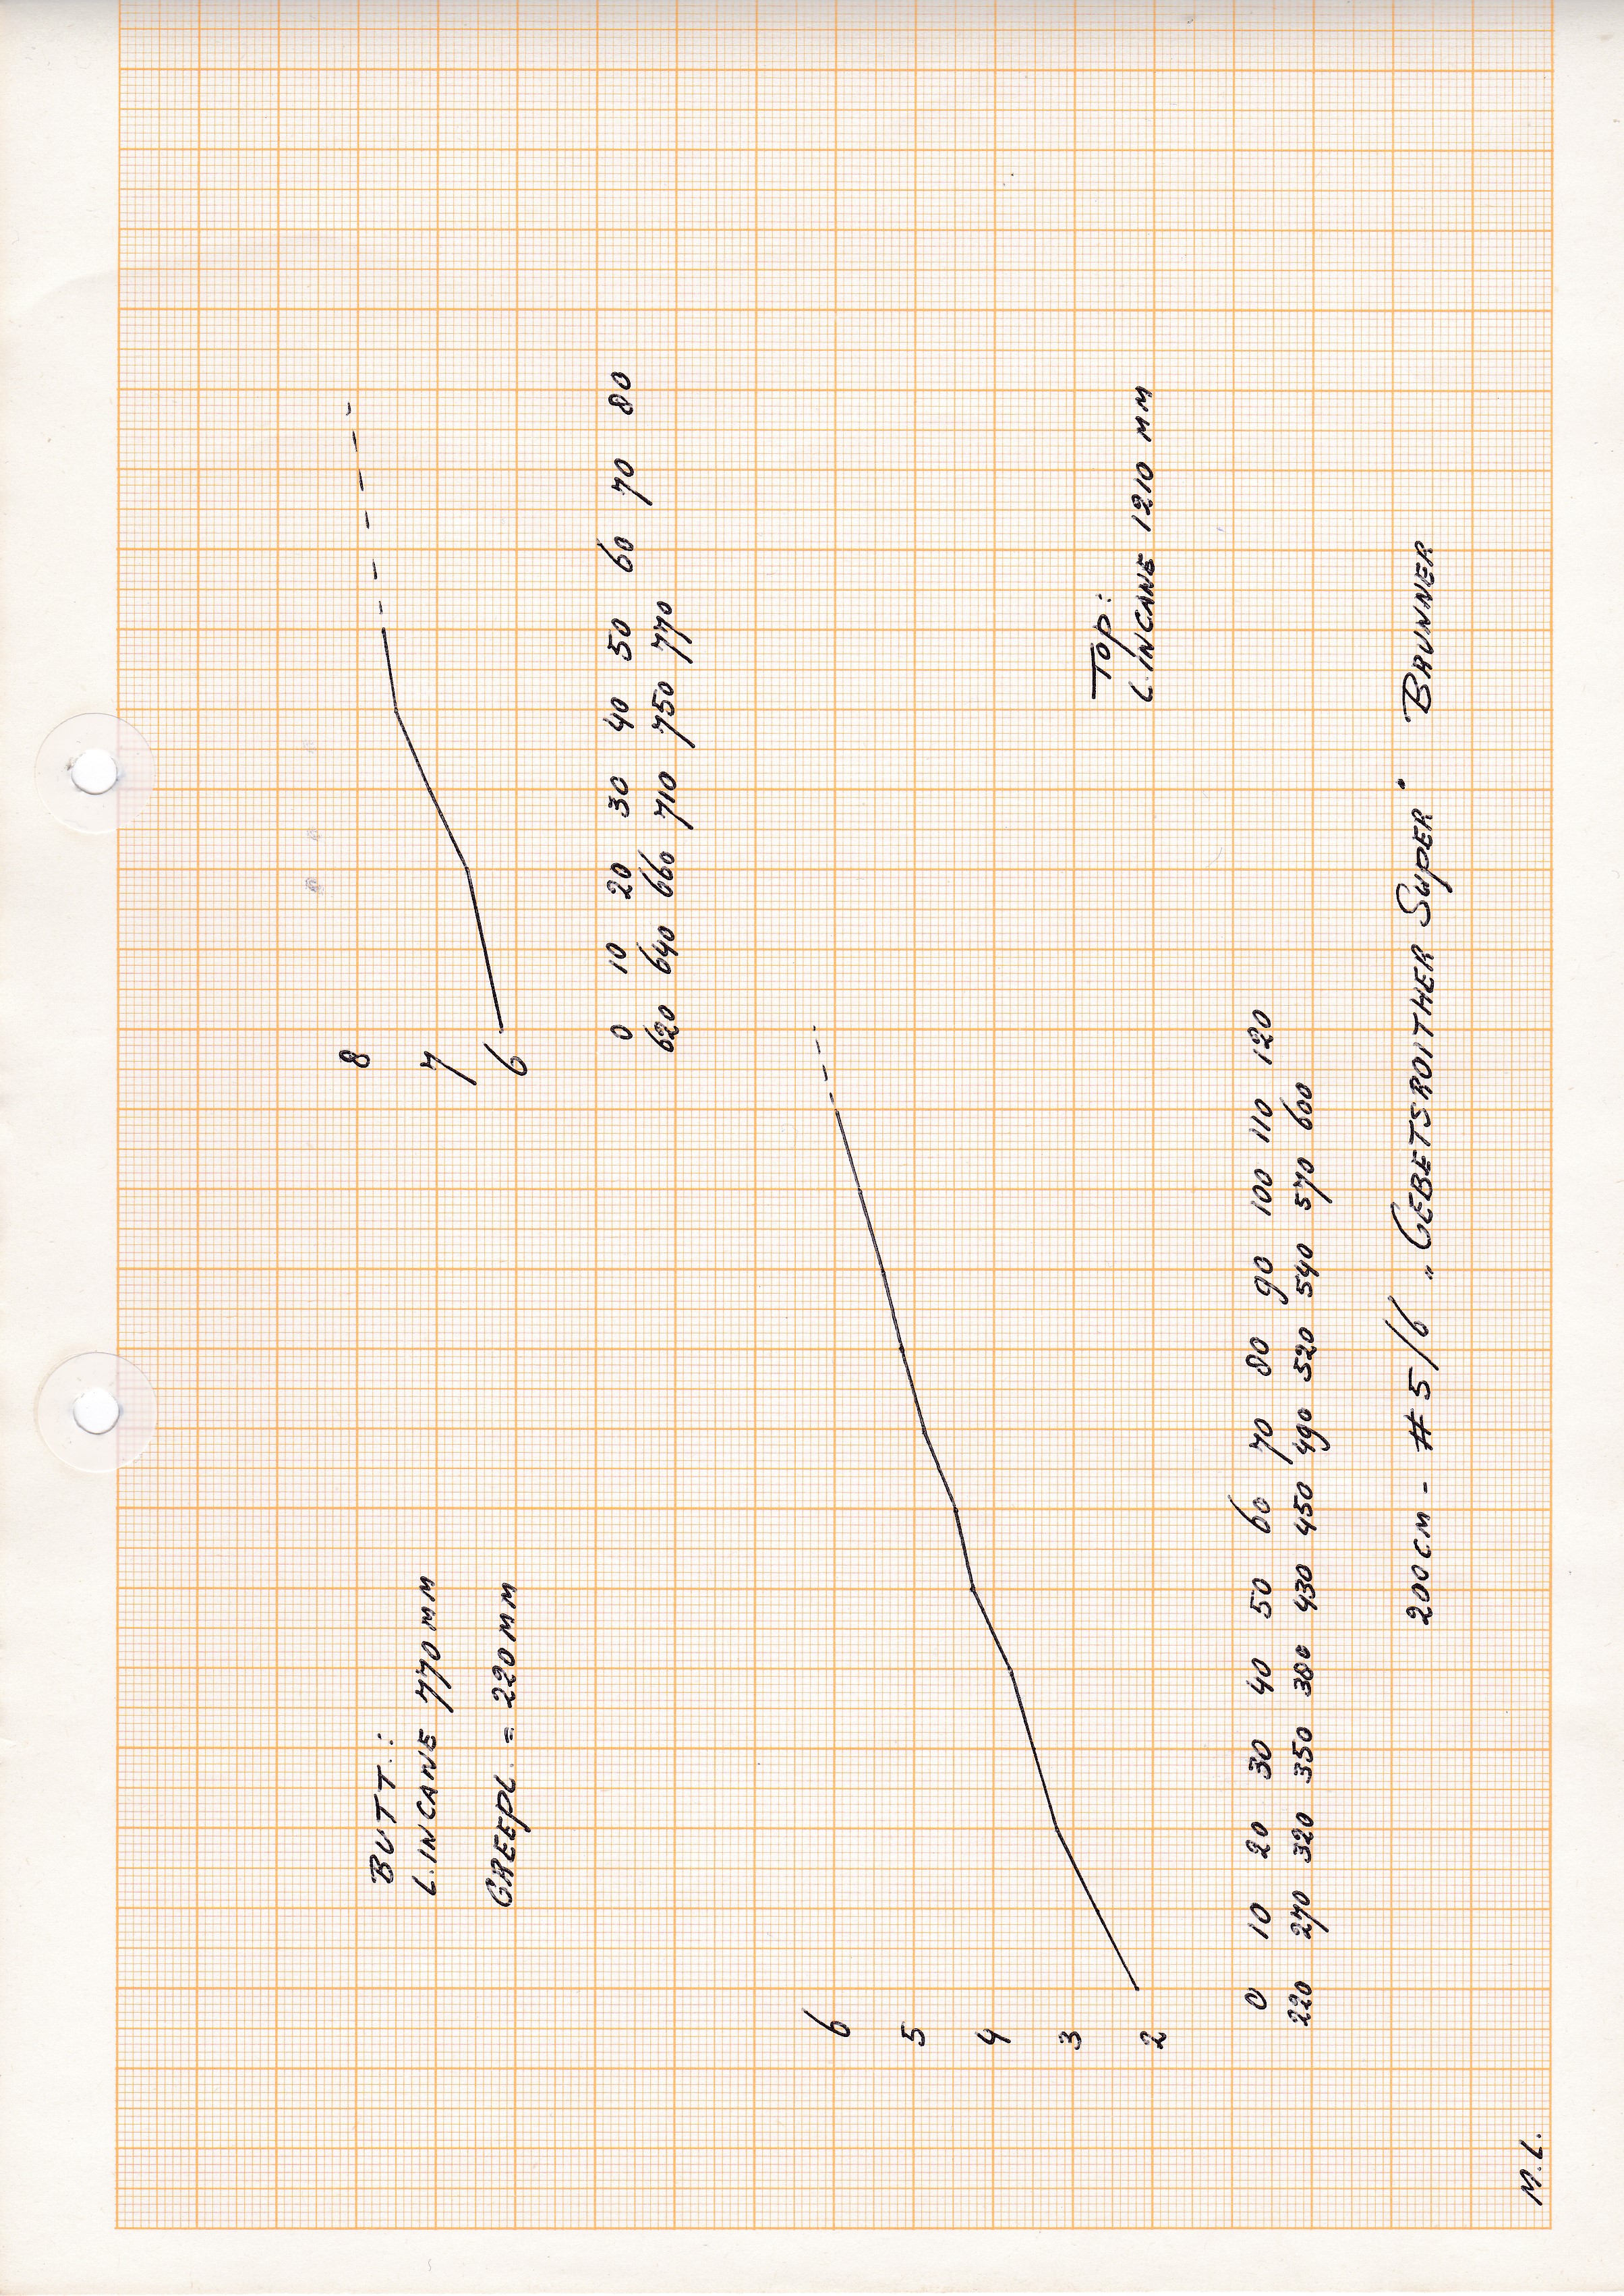 BUTT:
L.IN CANE 770 MM
GREEPL. = 220 MM
8
7
6
0 10 20 30 40 50 60 70 80
620 640 660 710 750 770
6
5
4
3
2
TOP:
L.IN CANE 1210 MM
0 10 20 30 40 50 60 70 80 90 100 110 120
220 270 320 350 380 430 450 490 520 540 570 600
200 CM - # 5/6 „GEBETSROITHER SUPER" BRUNNER
M.L.